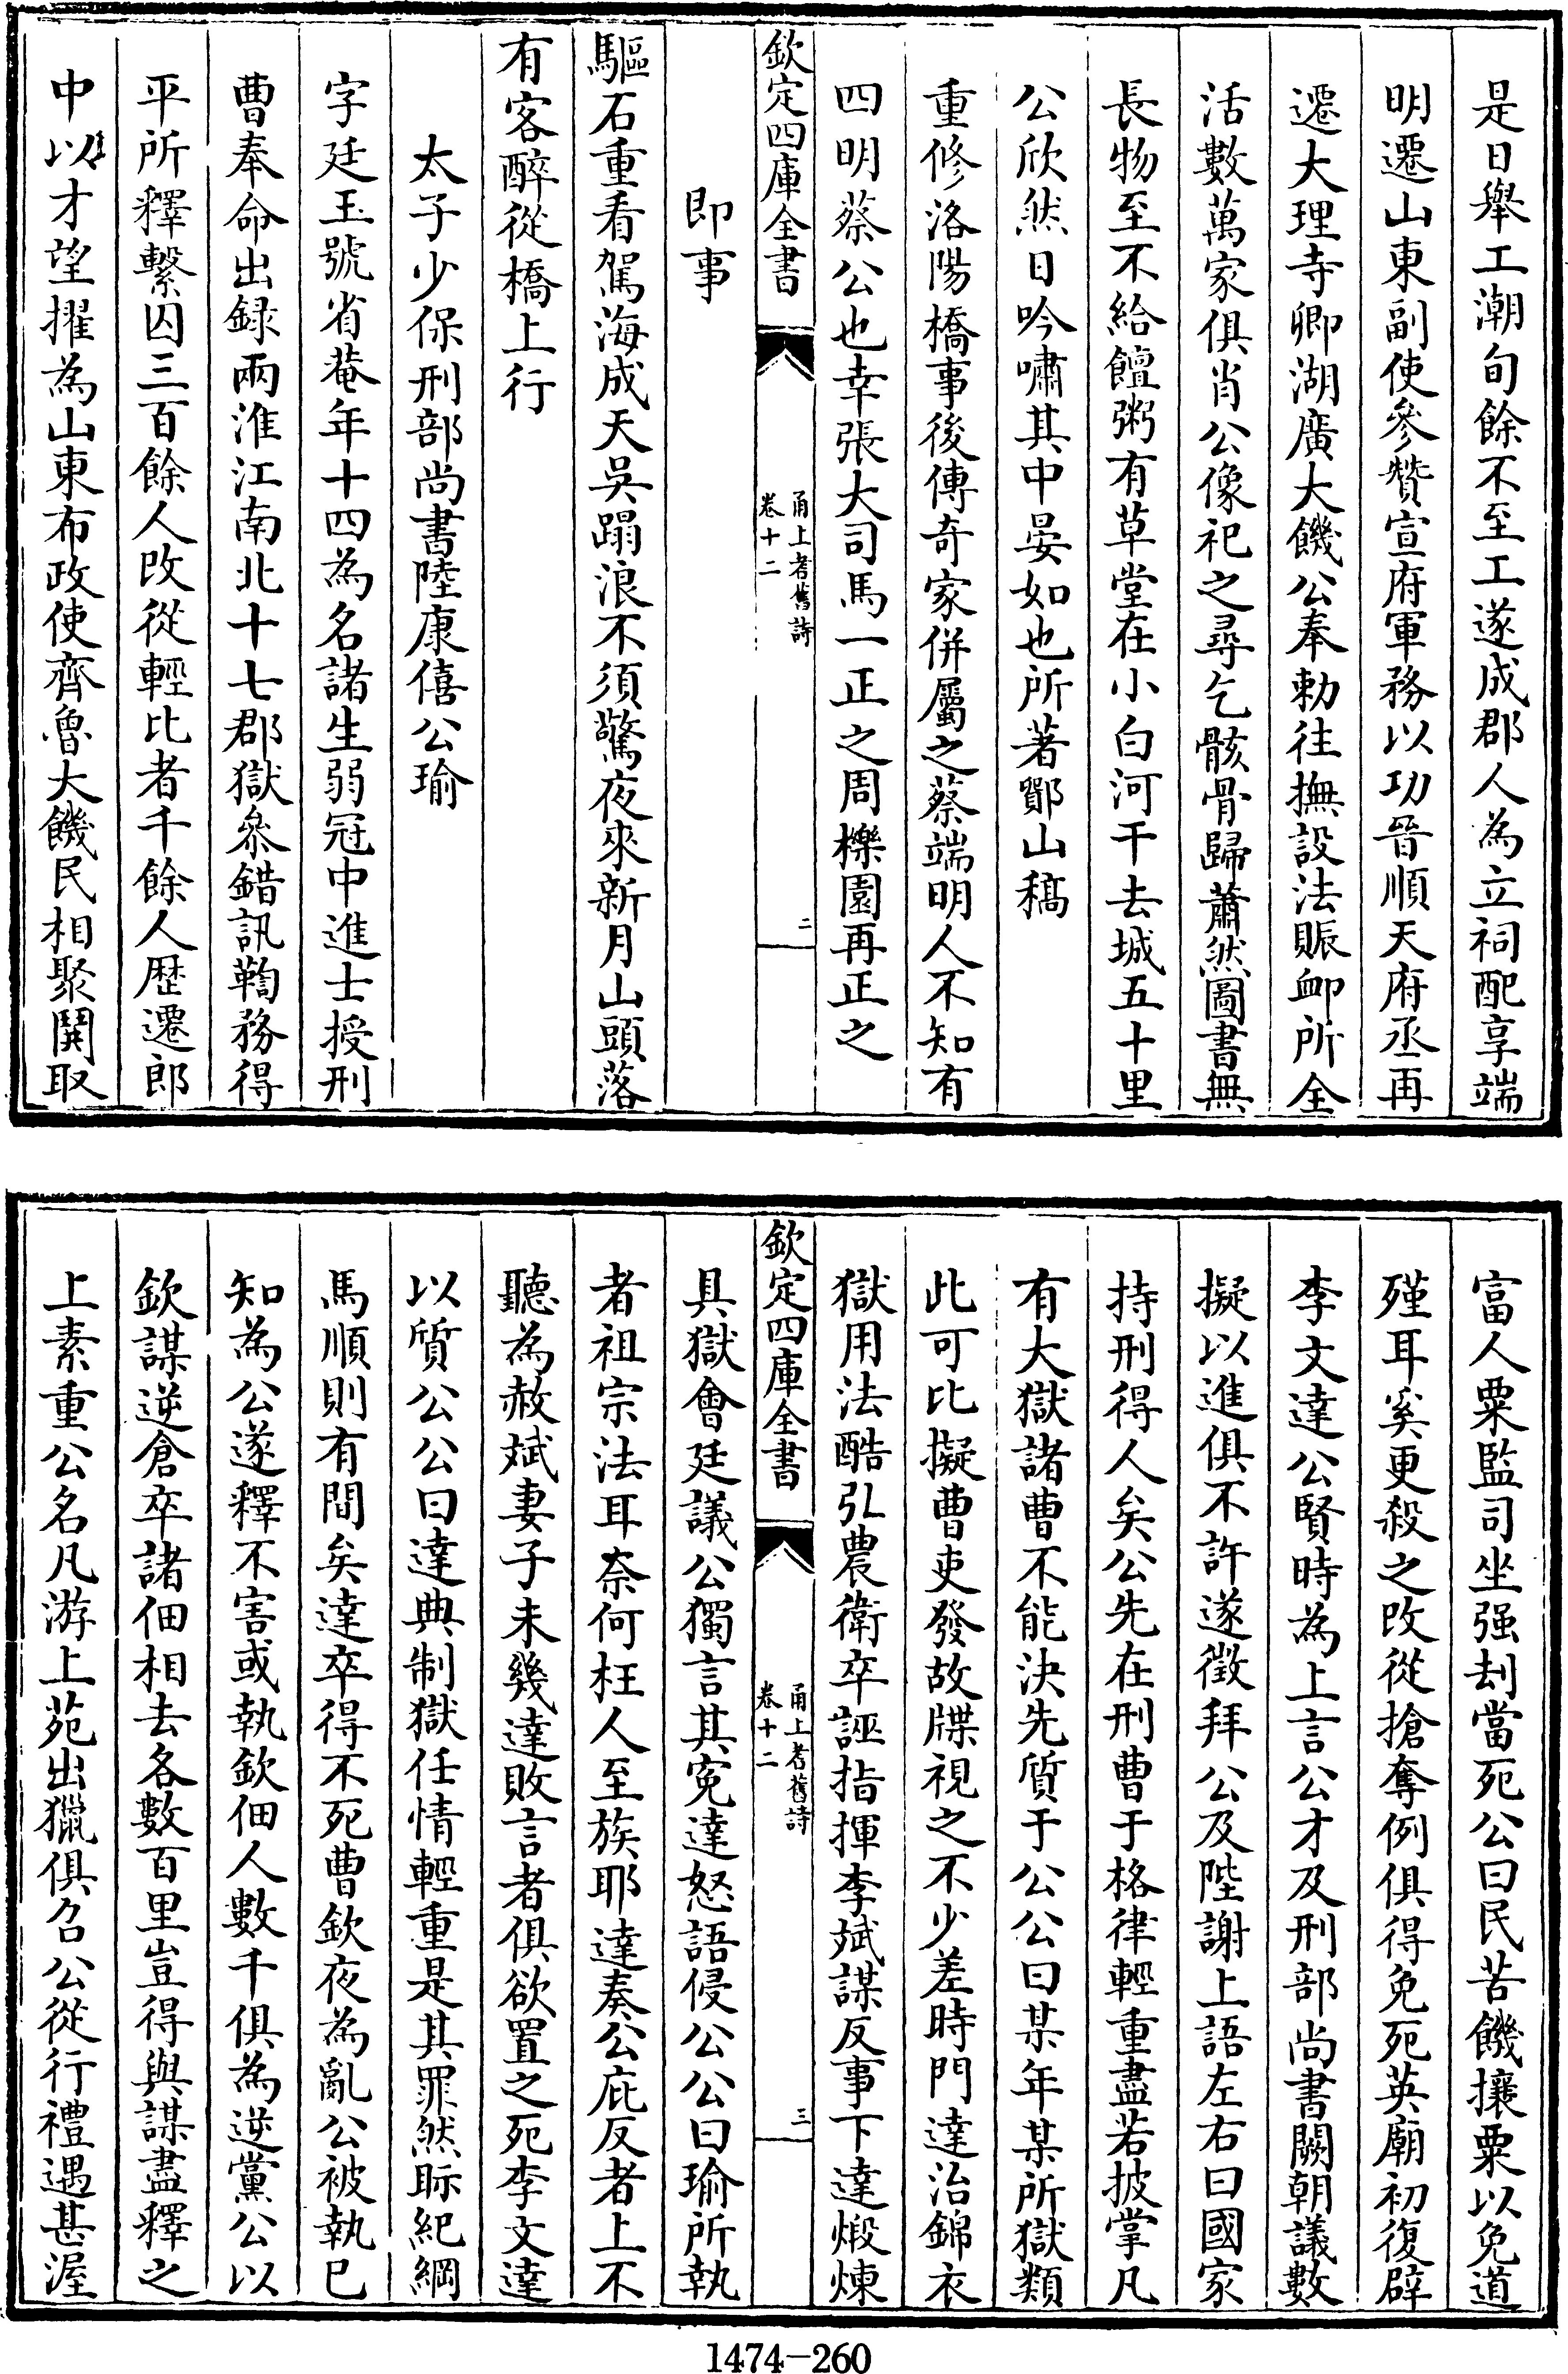 是日舉工潮旬餘不至工遂成郡人為立祠配享端
明遷山東副使參贊宣府軍務以功晉順天府丞再
遷大理寺卿湖廣大饑公奉勅往撫設法賑卹所全
活數萬家俱肖公像祀之尋乞骸骨歸蕭然圖書無
長物至不給饘粥有草堂在小白河干去城五十里
公欣然日吟嘯其中晏如也所著鄮山稿
重修洛陽橋事後傳奇家併屬之蔡端明人不知有
四明蔡公也幸張大司馬一正之周櫟園再正之
欽定四庫全書
甬上耆舊詩
卷十二
二
即事
驅石重看駕海成天吳蹋浪不須驚夜來新月山頭落
有客醉從橋上行
太子少保刑部尚書陸康僖公瑜
字廷玉號省菴年十四為名諸生弱冠中進士授刑
曹奉命出録兩淮江南北十七郡獄叅錯訊鞫務得
平所釋繫囚三百餘人改從輕比者千餘人歴遷郎
中以才望擢為山東布政使齊魯大饑民相聚鬨取
富人粟監司坐强刦當死公曰民苦饑攘粟以免道
殣耳奚更殺之改從搶奪例俱得免死英廟初復辟
李文達公賢時為上言公才及刑部尚書闕朝議數
擬以進俱不許遂徵拜公及陛謝上語左右曰國家
持刑得人矣公先在刑曹于格律輕重盡若披掌凡
有大獄諸曹不能決先質于公公曰某年某所獄類
此可比擬曹吏發故牒視之不少差時門達治錦衣
獄用法酷弘農衛卒誣指揮李斌謀反事下達煅煉
欽定四庫全書
甬上耆舊詩
卷十二
三
具獄會廷議公獨言其寃達怒語侵公公曰瑜所執
者祖宗法耳奈何枉人至族耶達奏公庇反者上不
聽為赦斌妻子未幾達敗言者俱欲置之死李文達
以質公公曰達典制獄任情輕重是其罪然眎紀綱
馬順則有間矣達卒得不死曹欽夜為亂公被執已
知為公遂釋不害或執欽佃人數千俱為逆黨公以
欽謀逆倉卒諸佃相去各數百里豈得與謀盡釋之
上素重公名凡游上苑出獵俱召公從行禮遇甚渥
1474-260